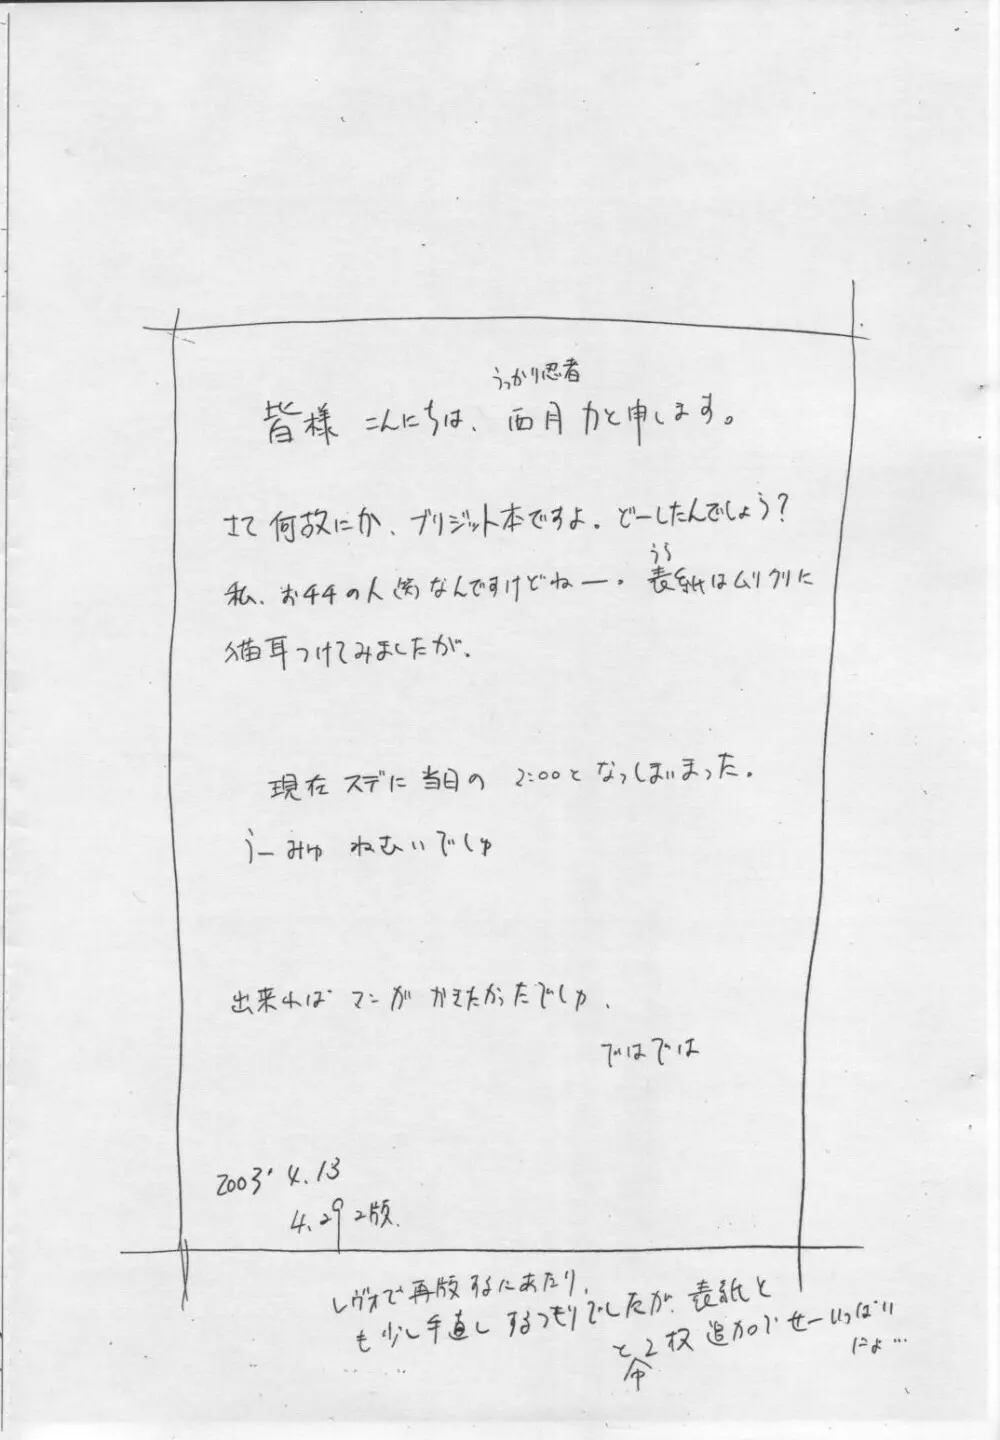 うっかり忍者
皆様 こんにちは、西月力と申します。
さて何故にか、ブリジット本ですよ。どーしたんでしょう?
うら
私、お千千の人(笑)なんですけどねー。表紙はムリクリに
猫耳つけてみましたが。
現在スデに当日の 2:00となっしまいまった。
うーみゅ ねむいでしゅ
出来れば マンガ かきたかったでしゅ、
ではでは
2003' 4.13
4.29 2版.
レヴォで再版するにあたり、
も少し手直しするつもりでしたが、表紙と
と2枚追加でせーいっぱい
にょ…